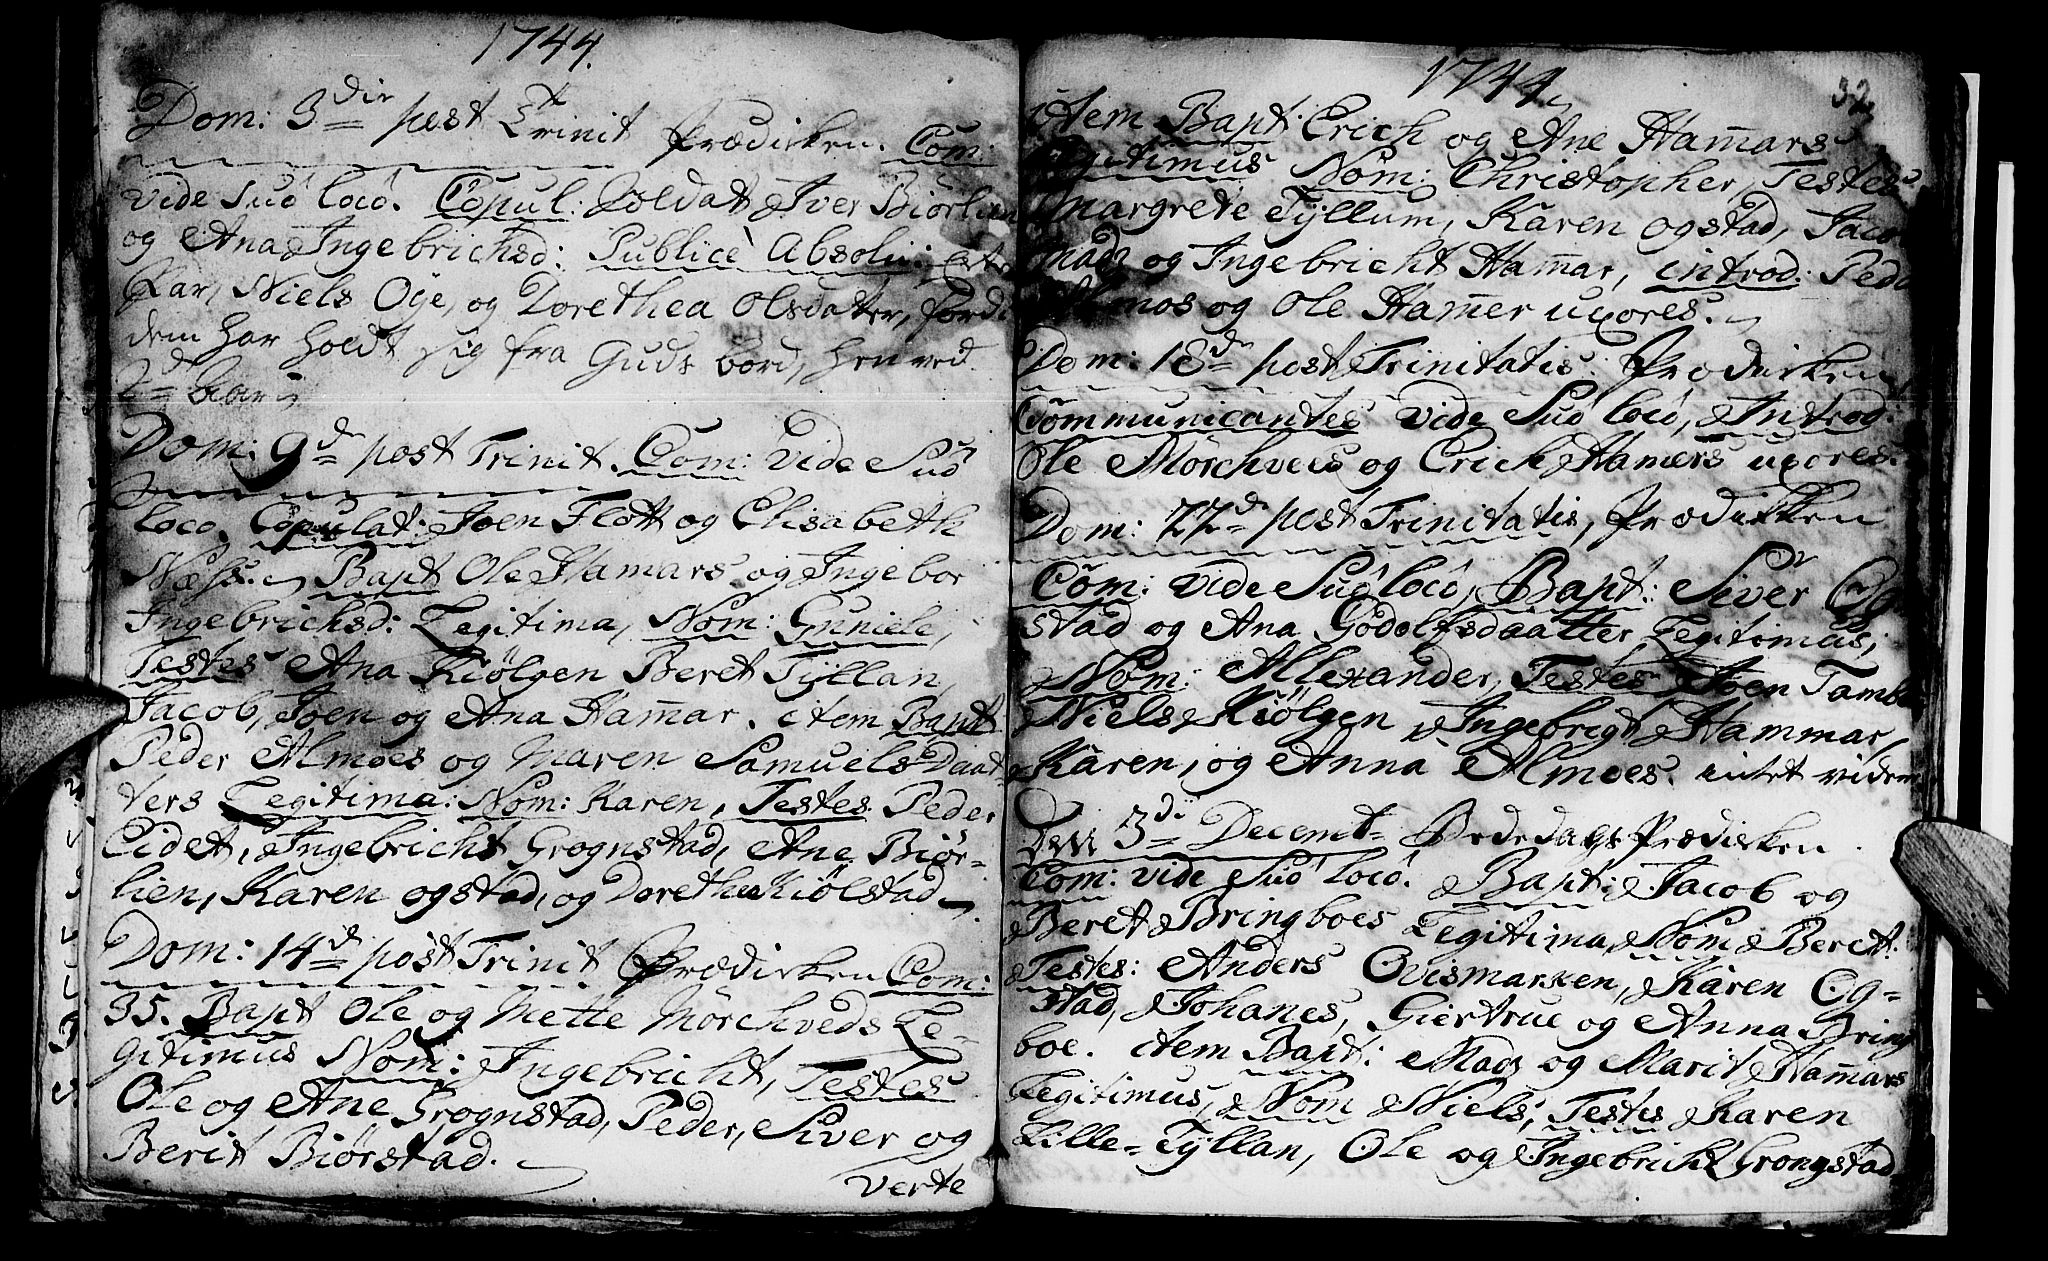 1744.
Dom: 3die post Trinit Prædicken. Com:
vide Suô locô. Copul: Soldat Iver Biørlien
og Ana Ingebrichsd: Publicè Absolv:
Niels Øÿe, og Dorethea Olsdatter, fordi
dem har holdt sig fra Guds bord, hen ved
2de Aar
Dom: 9de post Trinit. Com: vide Suô
loco. Copulat: Joen Flott og Elisabeth
Næss. Bapt Ole Hamars og Ingebor
Ingebrichsd: Legitima, Nom: Guniele,
Testes Ana Kiølgen Beret Tÿllan,
Jacob, Joen og Ana Ham̄ar. item Bapt
Peder Almoes og Maren Samuels Daat
ters Legitima: Nom: Karen, Testes Peder
Eidet, Ingebricht Grognstad, Ane Biør-
lien, Karen ogstad, og Dorethea Kiølstad
Dom: 14de post Trinit Prædicken Com:
35. Bapt Ole og Mette Mörchveds Le-
gitimus Nom: Ingebricht, Testes
Ole og Ane Grognstad, Peder, Siver og
Berit Biørstad.
verte
1744.
32
item Bapt: Erich og Ane Ham̄ars
Legitimus Nom: Christopher, Testes
Margrete Tÿllum, Karen ogstad, Jacob
Madz og Ingebricht Ham̄ar, introd: Peder
Almos og Ole Ham̄er uxores.
Dom: 18de post Trinitatis: Prædicken,
Communicantes vide Suô locô, Introd:
Ole Mörchveds og Erich Hamers uxores.
Dom: 27de post Trinitatis, Prædicken
Com: vide Suô locô, Bapt: Siver Og
stad og Ana Godolfsdaatter Legitimus,
Nom: Allexander, Testes Joen Tambu
Niels Kiölgen, Ingebrigt Hammar,
Karen, og Anna Almoes. intet videre
Den 3die Decemb Bededags Prædicken.
Com: vide Suô locô. Bapt: Jacob og
Beret Bringboes Legitima, Nom Beret.
Testes: Anders Ovismarken, Karen Og-
stad, Johanes, Giertrue og Anna Bring
boe. item Bapt: Madz og Marit Ham̄ars
Legitimus, Nom Niels, Testes Karen
Lille-Tÿllan, Ole og Ingebricht Grongstad